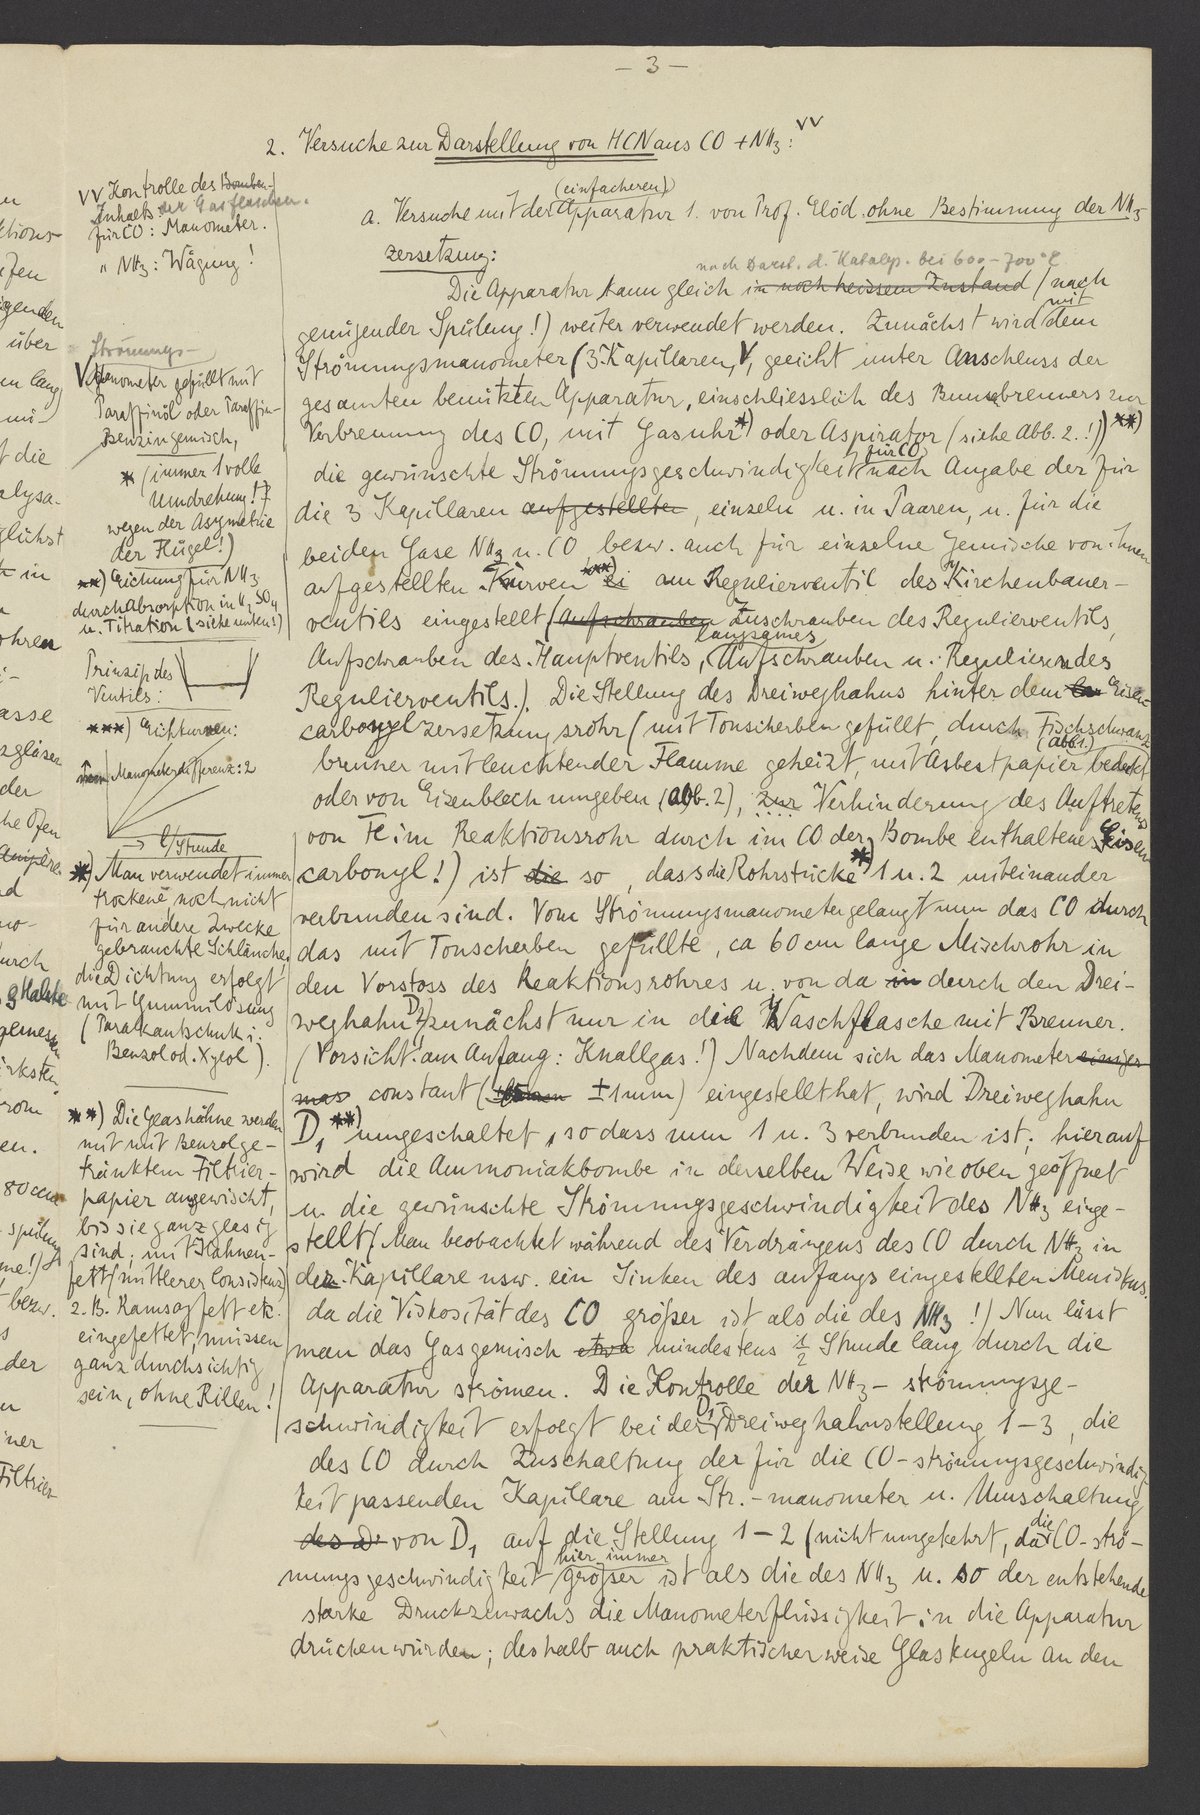 - 3 -
2. Versuche zur Darstellung von HCN aus CO + NH3: VV
VV Kontrolle des Bomben-
Inhalts der Gasflaschen.
für CO: Manometer.
" NH3: Wägung!
(einfacheren)
a. Versuche mit der Apparatur 1. von Prof. Glöd. ohne Bestimmung der NH3
zersetzung:
nach Darst. d. Katalys. bei 600-700°C
Die Apparatur kann gleich in noch heissem Zustand (nach
genügender Spülung!) weiter verwendet werden. Zunächst wird mit dem
Strömungsmanometer (3 Kapillaren, V, geeicht unter Anschluss der
gesamten benützten Apparatur, einschliesslich des Bunsenbrenners zur
Verbrennung des CO, mit Gasuhr*) oder Aspirator (siehe Abb. 2.!)) **)
die gewünschte Strömungsgeschwindigkeit für CO nach Angabe der für
die 3 Kapillaren aufgestellten, einzeln u. in Paaren, u. für die
beiden Gase NH3 u. CO, bezw. auch für einzelne Gemische von ihnen
aufgestellten Kurven ***) ei am Regulierventil des Kirchenbauer-
ventils eingestellt (Aufschrauben Zuschrauben des Regulierventils,
Aufschrauben des Hauptventils, langsames Aufschrauben u. Regulieren des
Regulierventils.). Die Stellung des Dreiweghahns hinter dem Eisen-
carbonylzersetzungsrohr (mit Tonscherben gefüllt, durch Fischschwanz
brenner mit leuchtender Flamme geheizt, mit Asbestpapier (Abb 1.) bedeckt
oder von Eisenblech umgeben (Abb. 2), zur Verhinderung des Auftretens
von Fe im Reaktionsrohr durch im CO der Bombe enthaltenes Eisen
carbonyl!) ist die so, dass die Rohrstücke *) 1 u. 2 miteinander
verbunden sind. Vom Strömungsmanometer gelangt nun das CO durch
das mit Tonscherben gefüllte, ca 60 cm lange Mischrohr in
den Vorstoss des Reaktionsrohres u. von da in durch den Drei-
weghahn D2 zunächst nur in die Waschflasche mit Brenner.
(Vorsicht! am Anfang: Knallgas!) Nachdem sich das Manometer einiger
mas constant (± 1 mm) eingestellt hat, wird Dreiweghahn
D1 **) umgeschaltet, so dass nun 1 u. 3 verbunden ist; hierauf
wird die Ammoniakbombe in derselben Weise wie oben geöffnet
u. die gewünschte Strömungsgeschwindigkeit des NH3 einge-
stellt (Man beobachtet während des Verdrängens des CO durch NH3 in
der Kapillare usw. ein Sinken des anfangs eingestellten Meniskus,
da die Viskosität des CO größer ist als die des NH3!) Nun lässt
man das Gasgemisch etwa mindestens 1/2 Stunde lang durch die
Apparatur strömen. Die Kontrolle der NH3-strömungsge-
schwindigkeit erfolgt bei der D1-Dreiweghahnstellung 1-3, die
des CO durch Zuschaltung der für die CO-strömungsgeschwindig-
keit passenden Kapillare am Str.-manometer u. Umschaltung
des D' von D1 auf die Stellung 1-2 (nicht umgekehrt, da die CO-strö-
mungsgeschwindigkeit hier immer größer ist als die des NH3 u. so der entstehende
starke Druckzuwachs die Manometerflüssigkeit in die Apparatur
drücken würde; deshalb auch praktischerweise Glaskugeln an den
Strömungs-
V Manometer gefüllt mit
Paraffinöl oder Paraffin-
Benzingemisch,
* (immer 1 volle
Umdrehung!
wegen der Asymetrie
der Flügel!)
**) Eichung für NH3
durch Absorption in H2SO4
u. Titration (siehe unten!)
Prinzip des
Ventils:
***) Eichkurven:
Manometerdifferenz:2
l/Stunde
*) Man verwendet immer
trockene, noch nicht
für andere Zwecke
gebrauchte Schläuche,
die Dichtung erfolgt
mit Gummilösung
(Parakautschuk i.
Benzol od. Xylol).
**) Die Glashähne werden
mit mit Benzol ge-
tränktem Filtrier-
papier angewischt,
bis sie ganz glasig
sind; mit Hahnen-
fett (mittlerer Consistenz)
z.B. Ramsayfett etc.
eingefettet, müssen
ganz durchsichtig
sein, ohne Rillen!